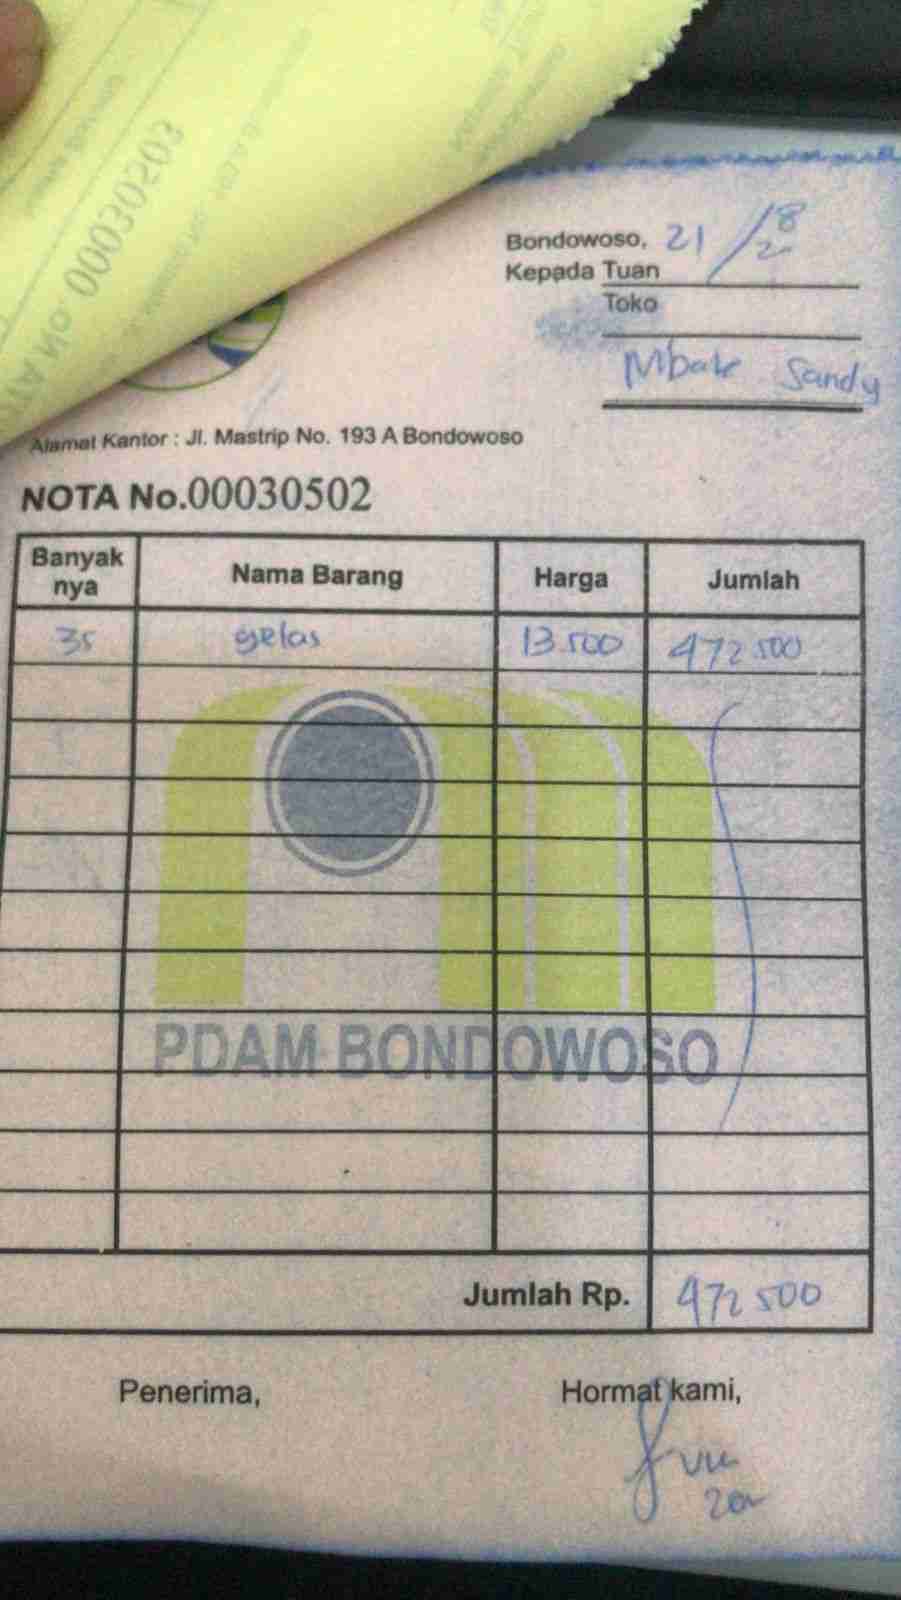 No. 00030203
Bondowoso, 21/8 20
Kepada Tuan
Toko
Mbak Sandy
Alamat Kantor : Jl. Mastrip No. 193 A Bondowoso
NOTA No.00030502
Banyak nya Nama Barang Harga Jumlah
35 gelas 13.500 472.500
PDAM BONDOWOSO
Jumlah Rp. 472 500
Penerima, Hormat kami,